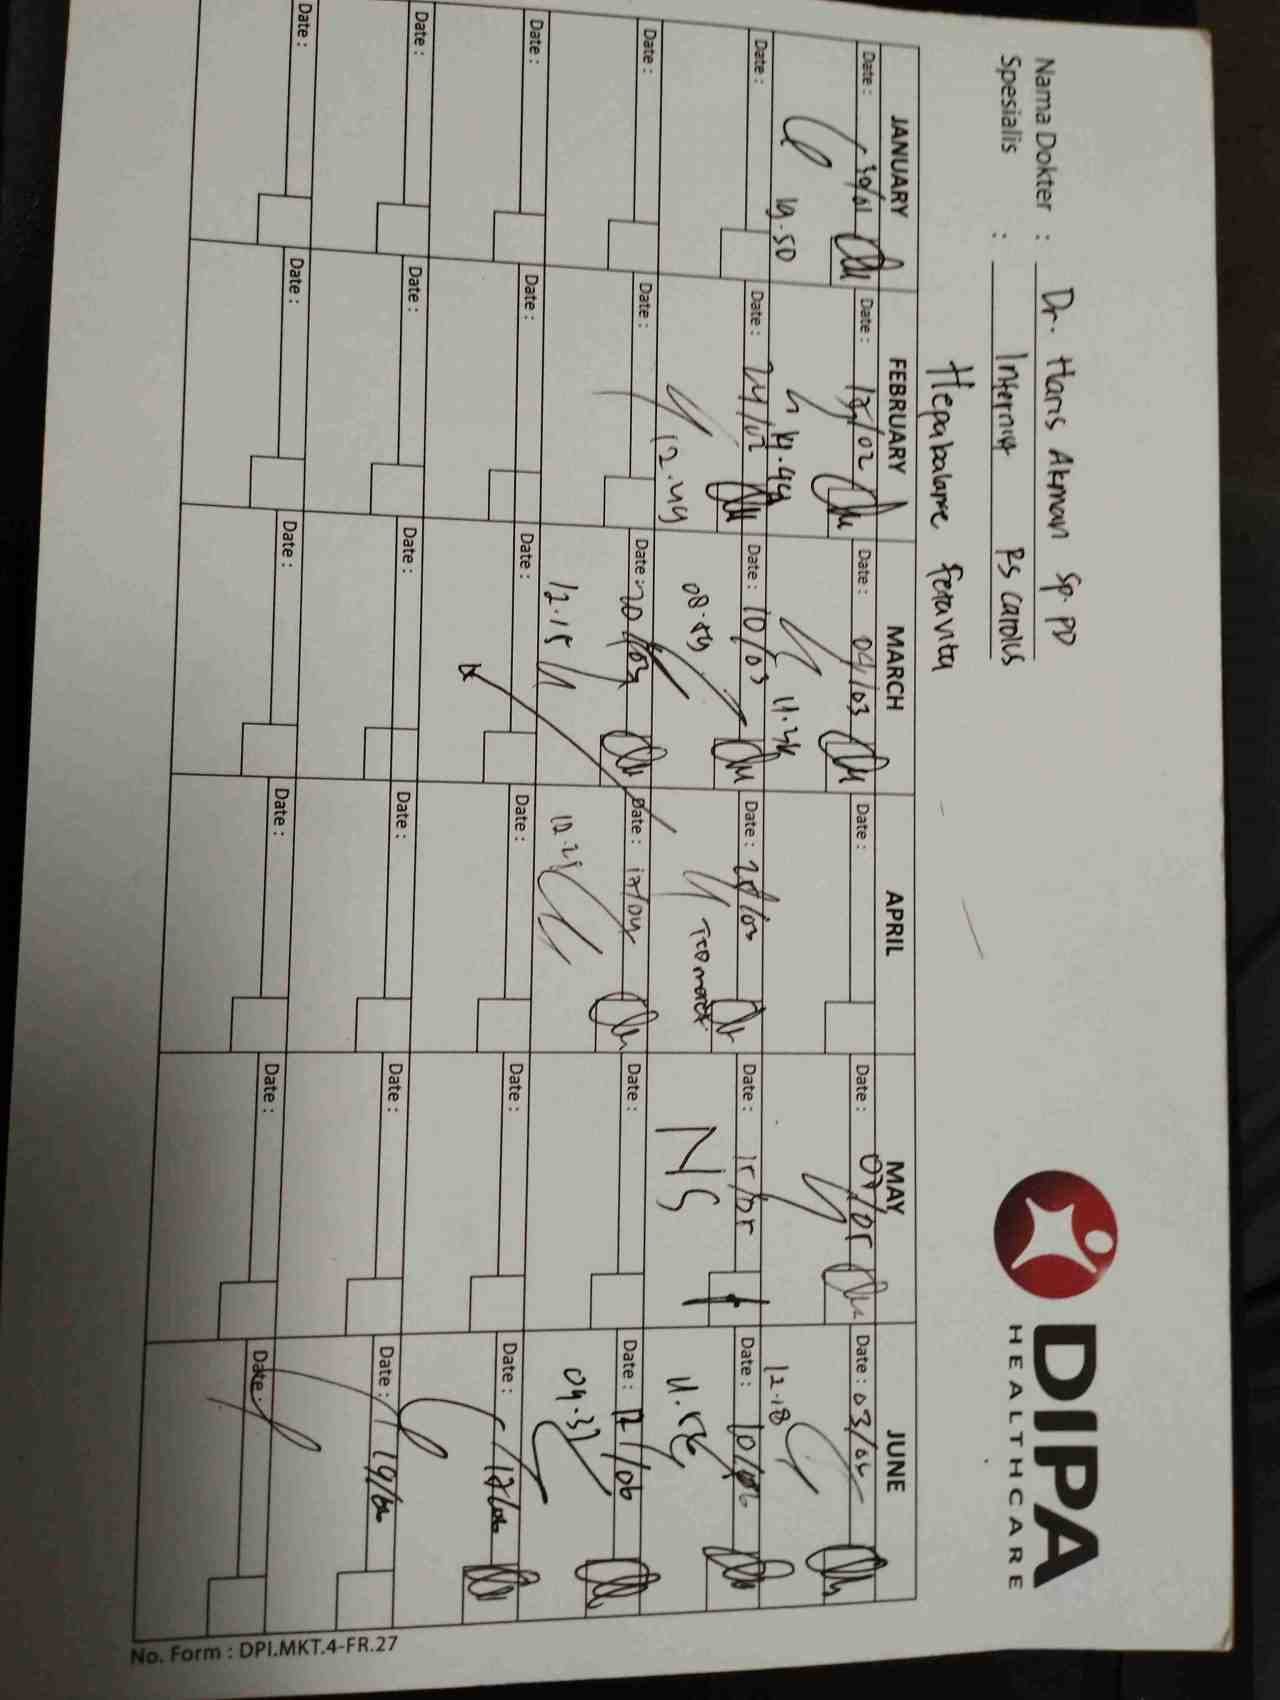 DIPA
HEALTHCARE
Nama Dokter : Dr. Haris Akman Sp. PD
Spesialis : Internis RS Carolus
Hepabalance Feravita
JANUARY FEBRUARY MARCH APRIL MAY JUNE
Date : 30/01 Date : 17/02 Date : 04/03 Date : Date : 07/05 Date : 03/06
19.50 19.44 11.34 12.18
Date : Date : 24/02 Date : 10/03 Date : 25/03 Date : 15/05 Date : 10/06
12.49 08.59 NS 11.56
Date : Date : Date : 20/03 Date : 17/04 Date : Date : 12/06
12.15 12.21 09.37
Date : Date : Date : Date : Date : Date : 17/06
Date : Date : Date : Date : Date : Date : 19/06
Date : Date : Date : Date : Date : Date :
No. Form : DPI.MKT.4-FR.27